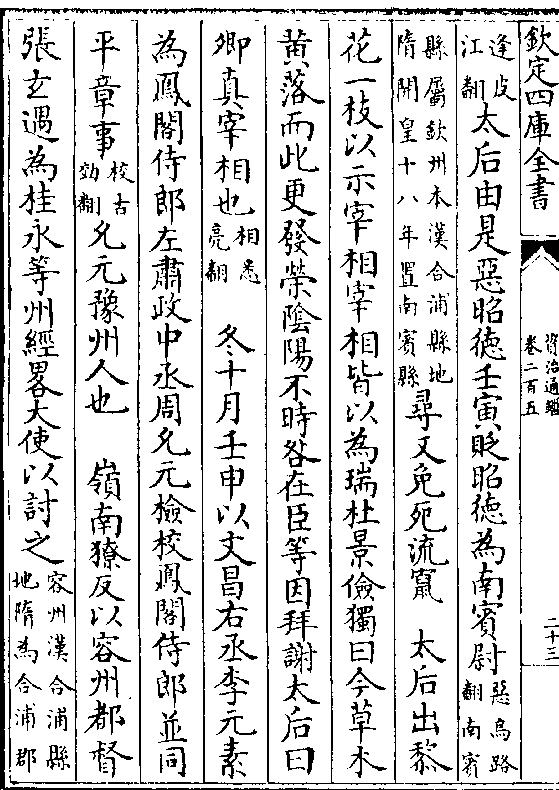 欽定四庫全書
資治通鑑
卷二百五
二十三
逢皮江翻太后由是惡昭德壬寅貶昭德為南賓尉惡烏路翻南賓
縣屬欽州本漢合浦縣地隋開皇十八年置南賓縣尋又免死流竄　太后出黎
花一枝以示宰相宰相皆以為瑞杜景儉獨曰今草木
黄落而此更發榮陰陽不時咎在臣等因拜謝太后曰
卿真宰相也相悉亮翻　冬十月壬申以文昌右丞李元素
為鳳閣侍郎左肅政中丞周允元檢校鳳閣侍郎並同
平章事校古効翻允元豫州人也　嶺南獠反以容州都督
張玄遇為桂永等州經畧大使以討之容州漢合浦縣地隋為合浦郡